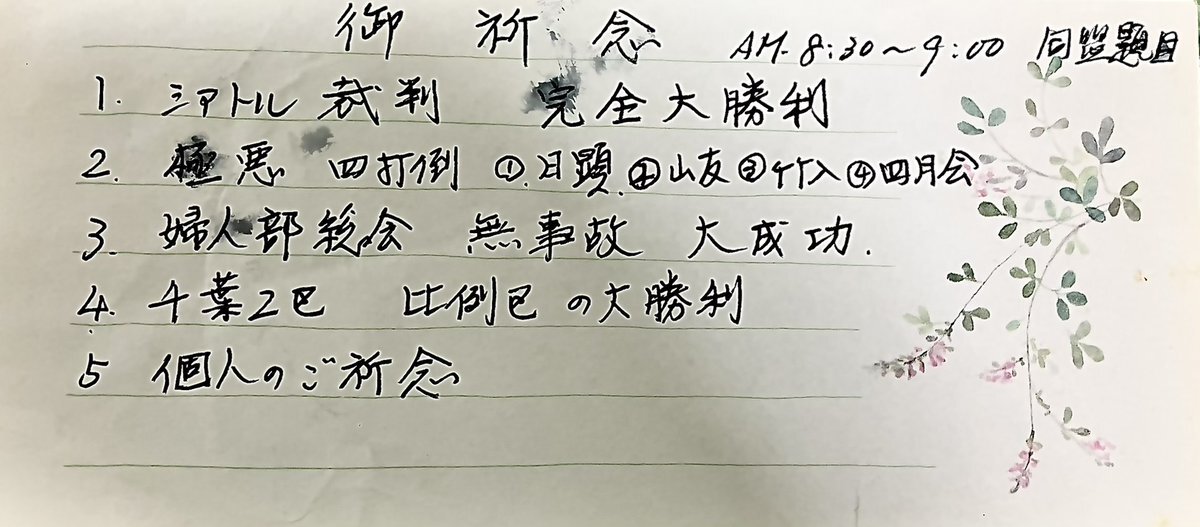 御祈念 AM. 8:30〜9:00 同盟題目
1. シアトル 裁判 完全大勝利
2. 極悪 四打倒 ①日顕 ②山友 ③竹入 ④四月会
3. 婦人部総会 無事故 大成功.
4. 千葉2区 比例区の大勝利
5 個人のご祈念